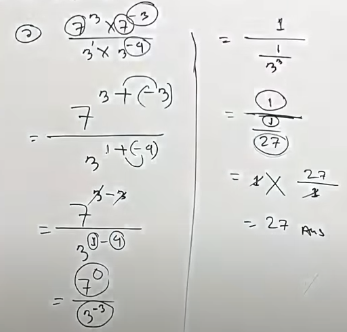 ② 7³ × 7⁻³ / 3¹ × 3⁻⁴
= 7³⁺⁽⁻³⁾ / 3¹⁺⁽⁻⁴⁾
= 7³⁻³ / 3¹⁻⁴
= 7⁰ / 3⁻³
= 1 / (1 / 3³)
= 1 / (1 / 27)
= 1 × 27 / 1
= 27 Ans